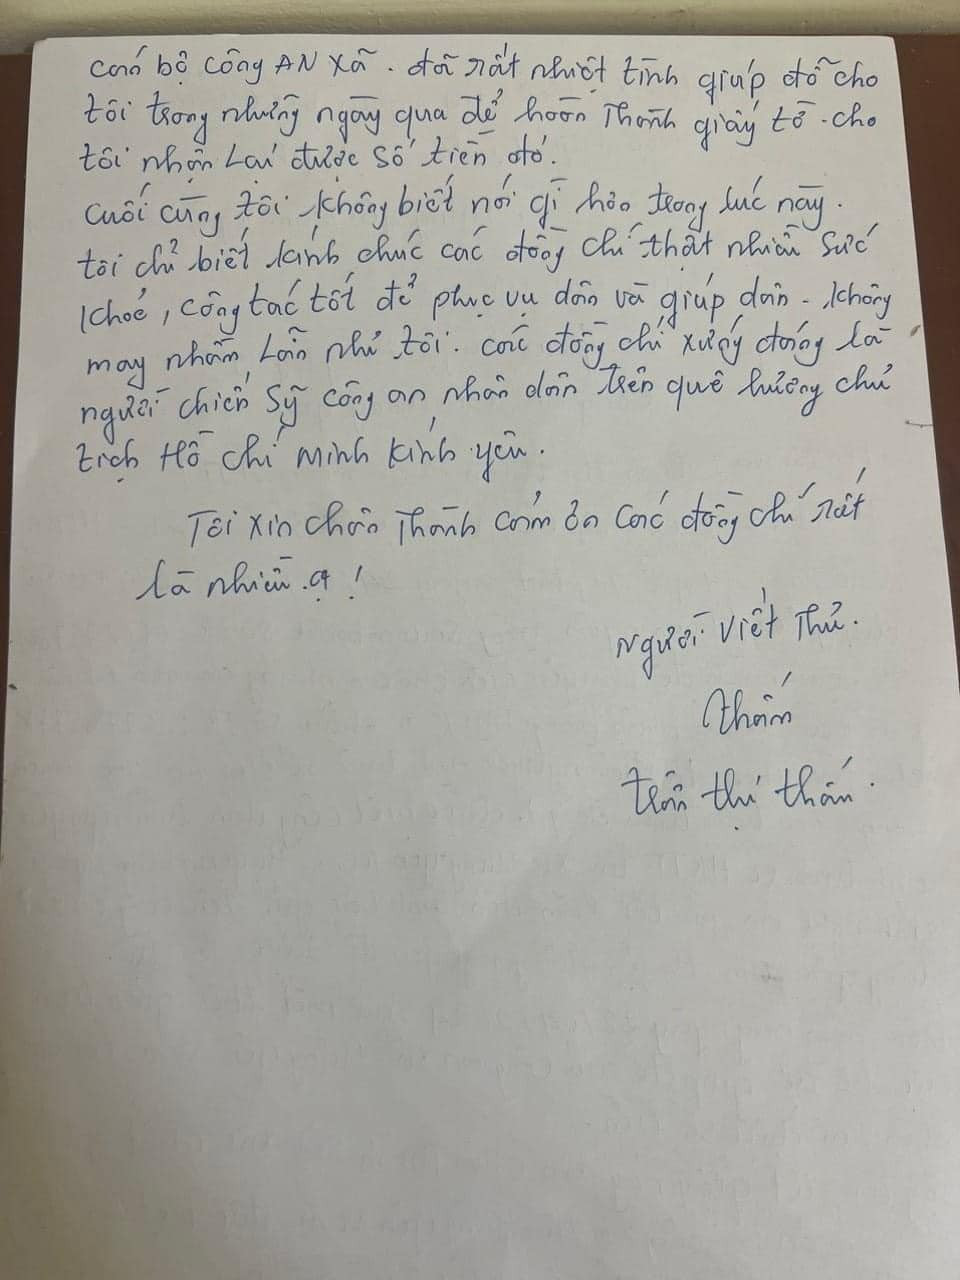 cán bộ công AN xã. đã rất nhiệt tình giúp đỡ cho
tôi trong những ngày qua để hoàn Thành giấy tờ. cho
tôi nhận Lại được số tiền đó.
cuối cùng tôi không biết nói gì hơn trong lúc này.
tôi chỉ biết kính chúc các đồng chí thật nhiều sức
khoẻ, công tác tốt để phục vụ dân và giúp dân - không
may nhầm Lẫn như tôi. các đồng chí xứng đáng là
người chiến sỹ công an nhân dân trên quê hương chủ
tịch Hồ chí minh kính yêu.
Tôi xin chân Thành cảm ơn các đồng chí rất
là nhiều ạ!
Người viết Thư.
Thắm
trần thị thắm.